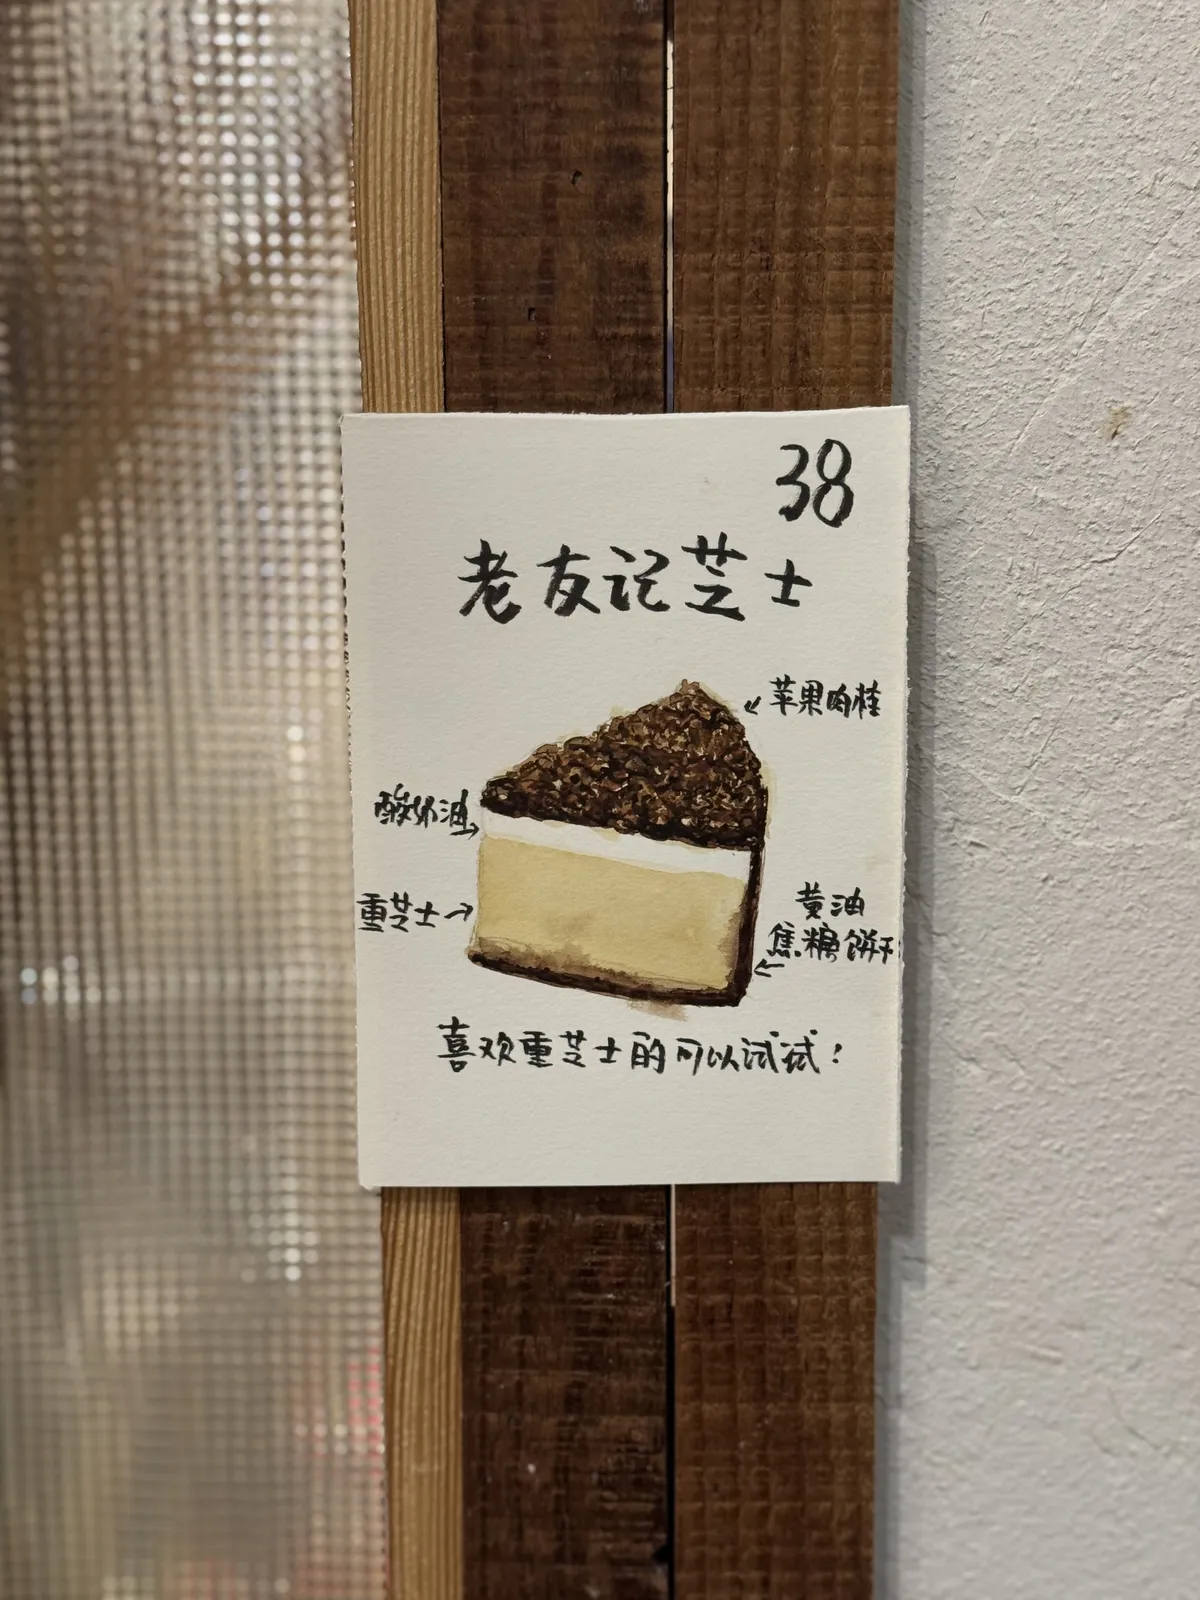 38
老友记芝士
苹果肉桂
酸奶油
重芝士
黄油
焦糖饼干
喜欢重芝士的可以试试!